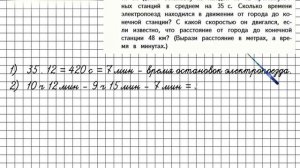 ных станций в среднем на 35 с. Сколько времени
электропоезд находился в движении от города до ко-
нечной станции? С какой скоростью он двигался, ес-
ли известно, что расстояние от города до конечной
станции 48 км? (Вырази расстояние в метрах, а вре-
мя в минутах.)
1) 35 · 12 = 420 с = 7 мин – время остановок электропоезда.
2) 10 ч 12 мин – 9 ч 15 мин – 7 мин =